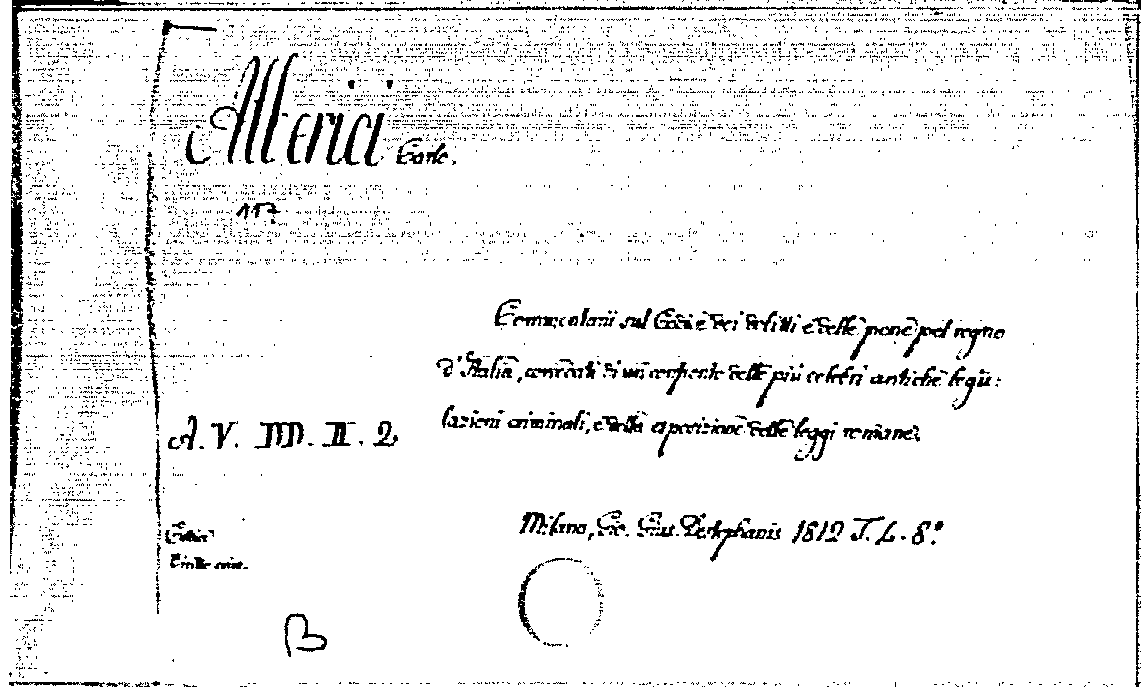 Alberici Carlo.
117
Commentarii sul Codice dei delitti e delle pene pel regno
d'Italia, corredati di un confronto delle più celebri antiche legis:
lazioni criminali, e della esposizione delle leggi romane.
A. V. III. II. 2
Milano, Gio. Gius. Destephanis 1812 T. L. 8.°
Codice
B